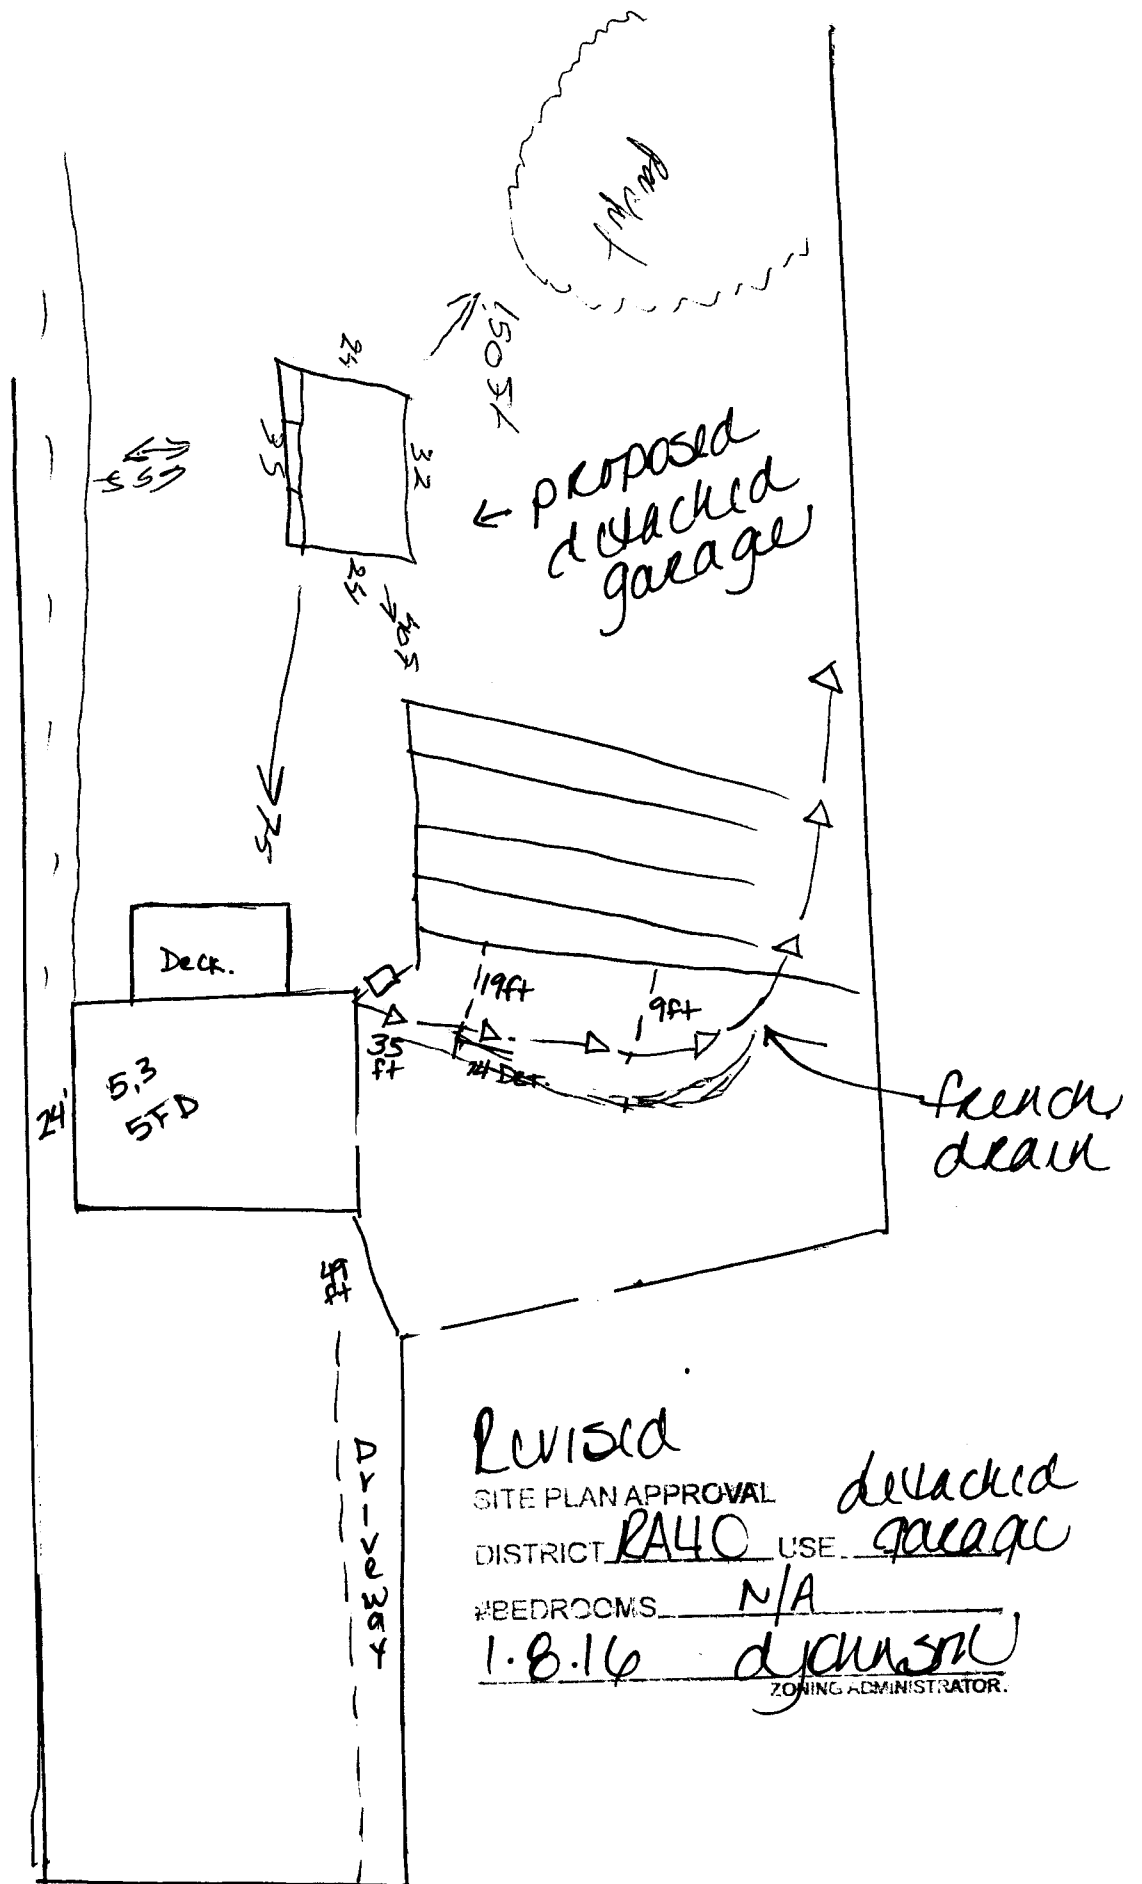 24
35
32
24
75
← proposed
detached
garage
Deck.
19ft
9ft
35
ft
5,3
SFD
24'
french
drain
49
ft
Driveway
Revised
SITE PLAN APPROVAL
detached
DISTRICT RA40 USE garage
#BEDROOMS N/A
1.8.16 djohnson
ZONING ADMINISTRATOR.